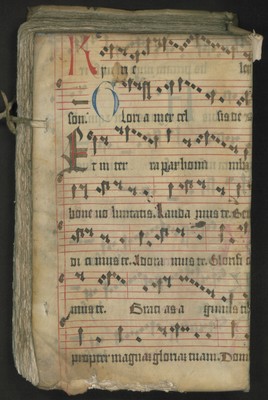 son. Glori a in excel sis de
Et in ter ra pax homini
bone uo luntatis. Lauda mus te. Be
di ci mus te. Adora mus te. Glorifi
mus te. Grati as a gimus
propter magnā gloriā tuam. Domi